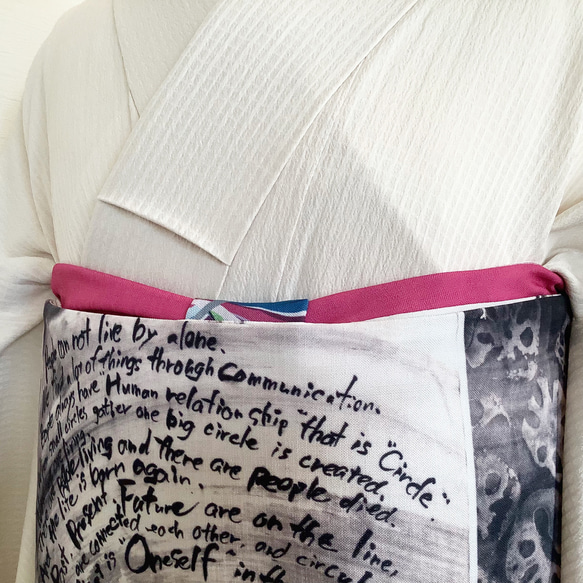 can not live by alone.
a lot of things through communication.
always have "Human relationship" that is "Circle".
small circles gather one big circle is created.
people living and there are people died.
the life is born again.
Past, Present, Future are on the line,
are connected each other, and
is "Oneself" in